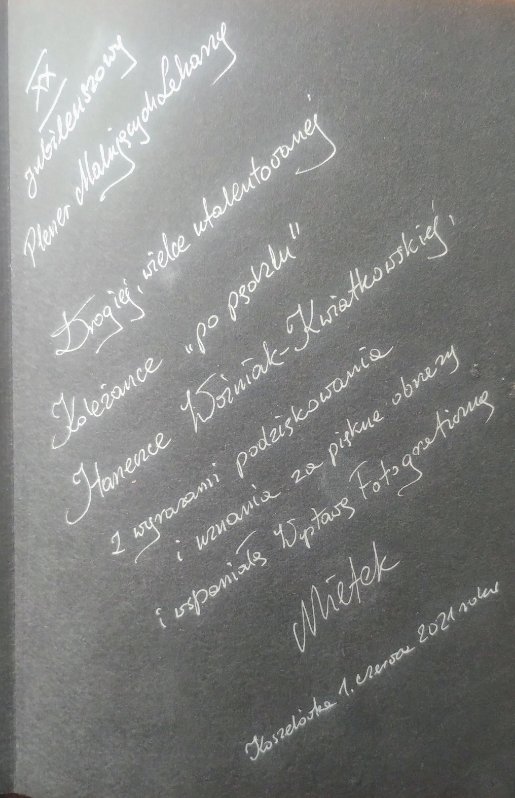 XX
Jubileuszowy
Plener Malujących Lekarzy
Drogiej, wielce utalentowanej
Koleżance "po pędzlu"
Hanence Woźniak-Kwiatkowskiej,
z wyrazami podziękowania
i uznania za piękne obrazy
i wspaniałą Wystawę Fotograficzną
Mietek
Koszelówka 1. czerwca 2021 roku